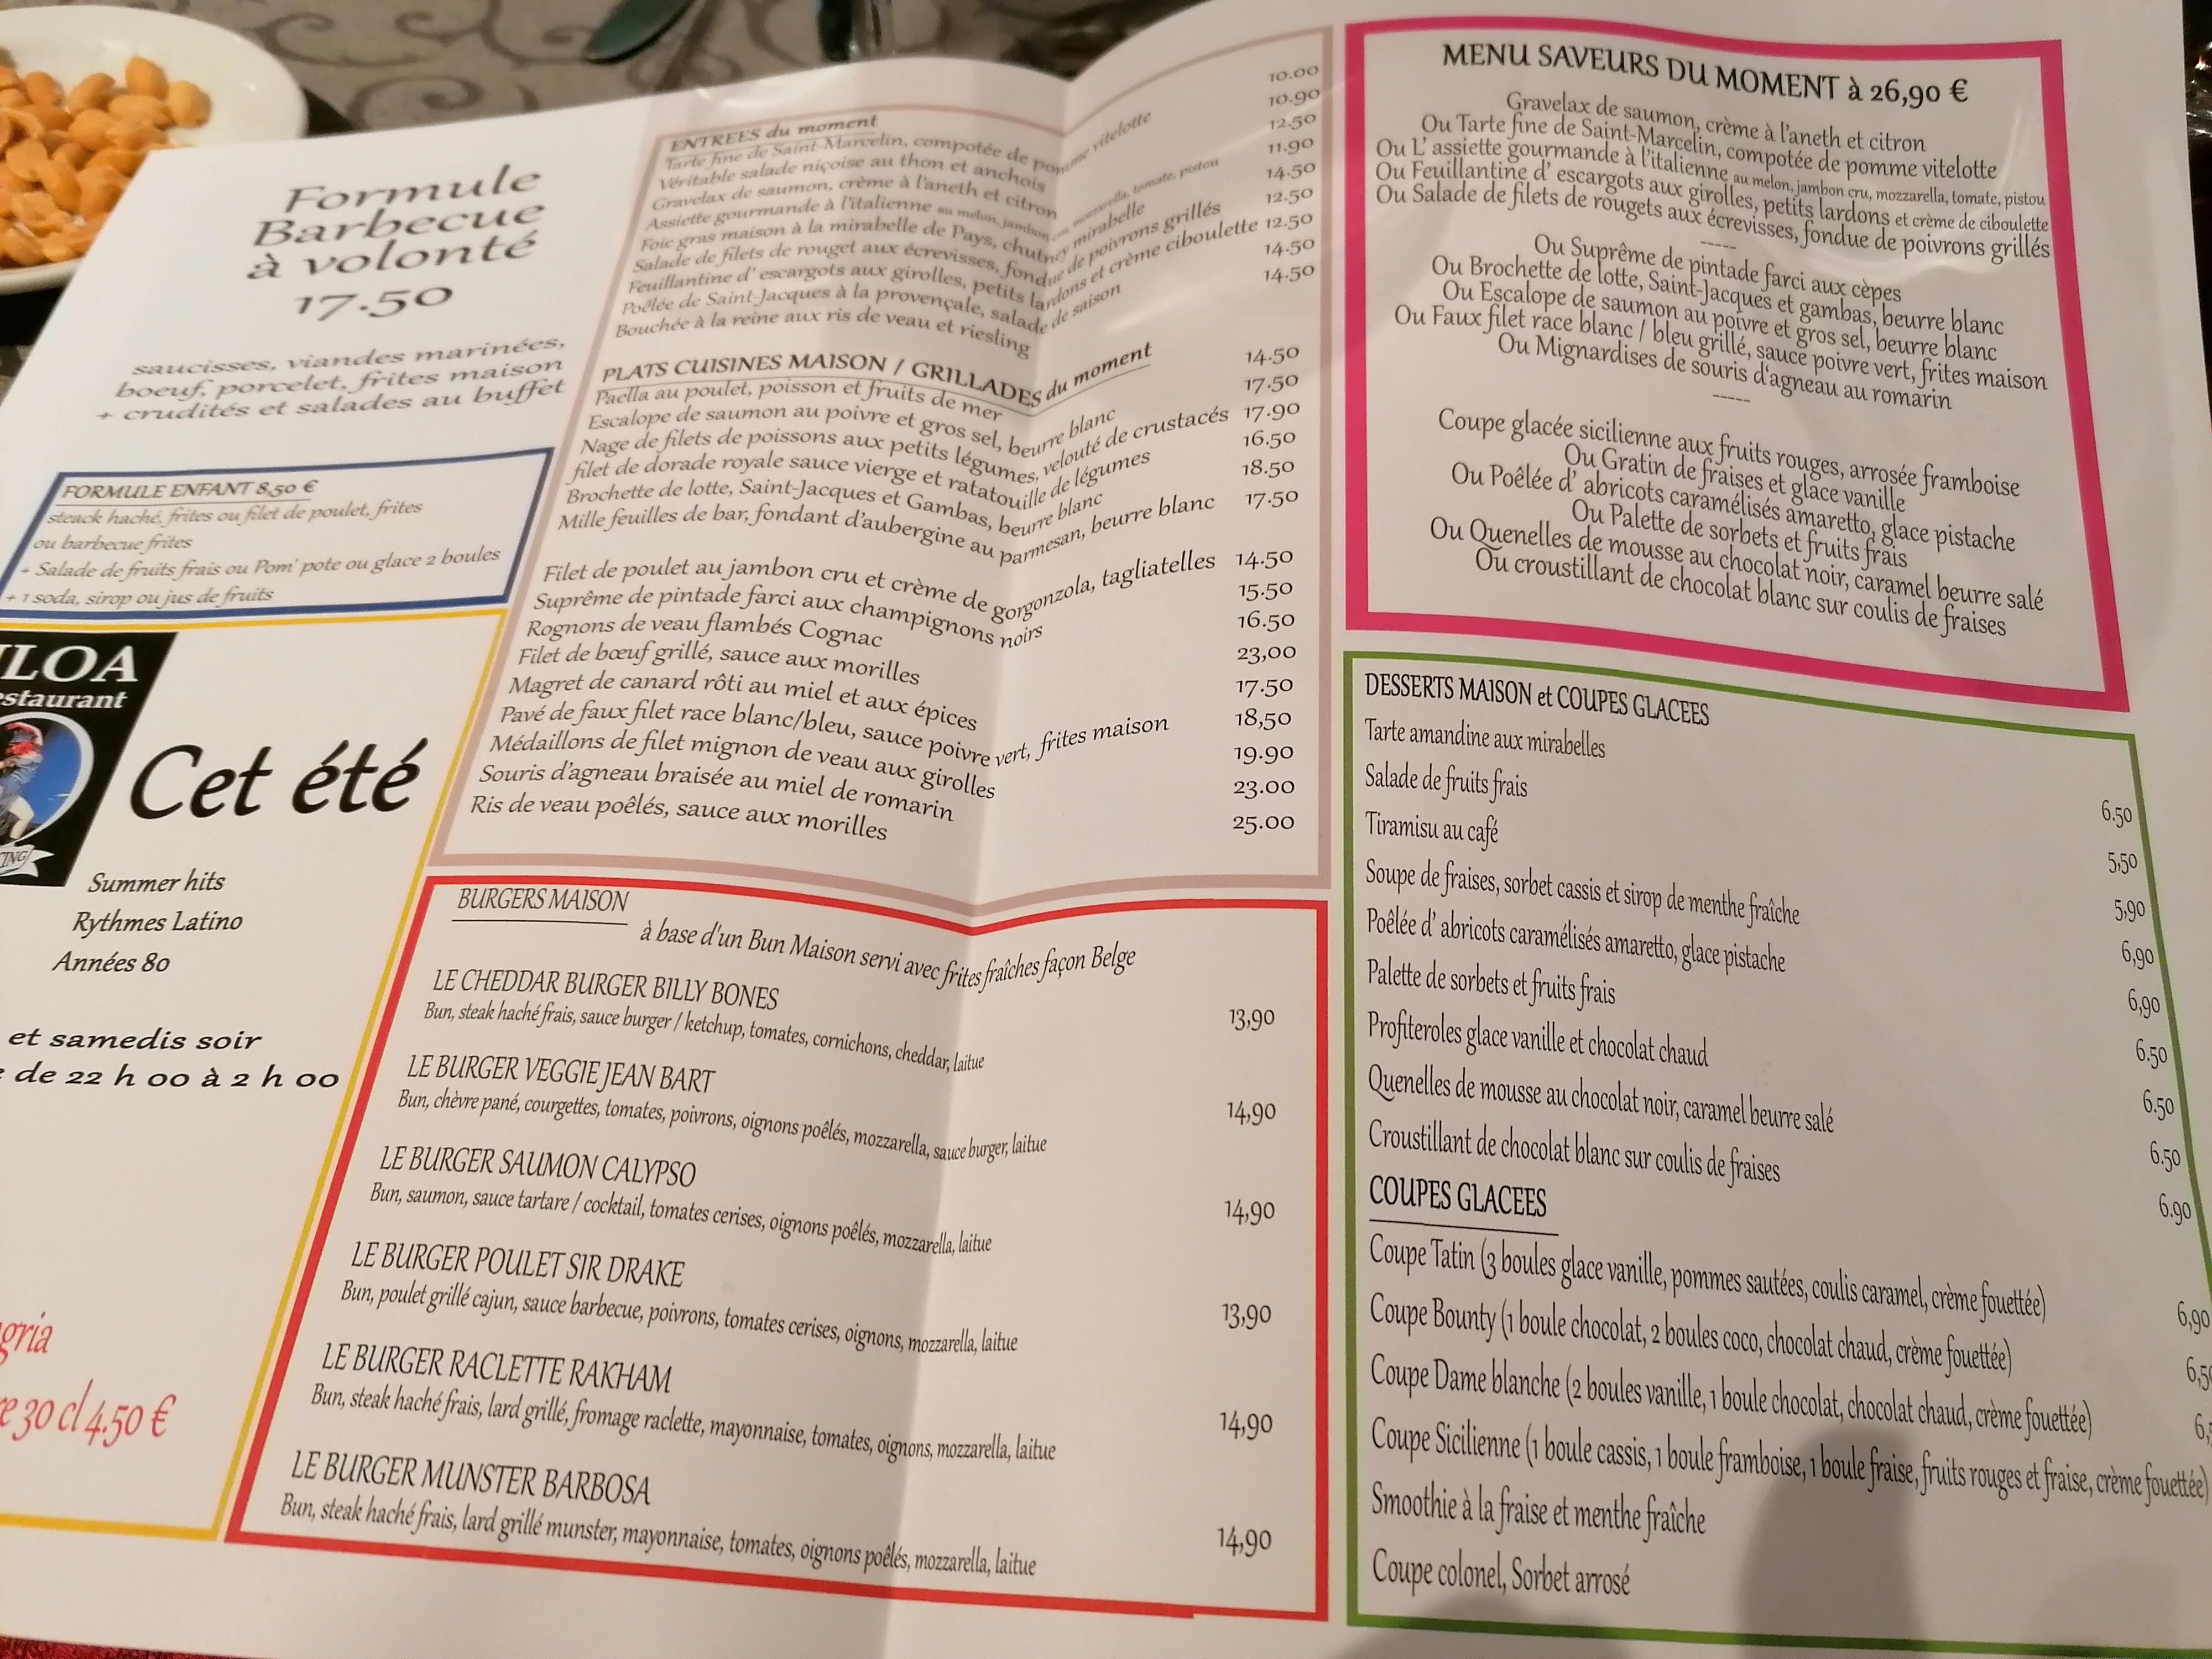 Formule
Barbecue
à volonté
17.50
saucisses, viandes marinées,
boeuf, porcelet, frites maison
+ crudités et salades au buffet
FORMULE ENFANT 8,50 €
steack haché, frites ou filet de poulet, frites
ou barbecue frites
+ Salade de fruits frais ou Pom' pote ou glace 2 boules
+ 1 soda, sirop ou jus de fruits
LOA
estaurant
Cet été
Summer hits
Rythmes Latino
Années 80
et samedis soir
de 22 h 00 à 2 h 00
gria
30 cl 4.50 €
ENTREES du moment
Tarte fine de Saint-Marcelin, compotée de pomme vitelotte 10.00
Véritable salade niçoise au thon et anchois 10.90
Gravelax de saumon, crème à l'aneth et citron 12.50
Assiette gourmande à l'italienne au melon, jambon cru, mozzarella, tomate, pistou 11.90
Foie gras maison à la mirabelle de Pays, chutney mirabelle 14.50
Salade de filets de rouget aux écrevisses, fondue de poivrons grillés 12.50
Feuillantine d' escargots aux girolles, petits lardons et crème ciboulette 12.50
Poêlée de Saint-Jacques à la provençale, salade de saison 14.50
Bouchée à la reine aux ris de veau et riesling 14.50
PLATS CUISINES MAISON / GRILLADES du moment
Paella au poulet, poisson et fruits de mer 14.50
Escalope de saumon au poivre et gros sel, beurre blanc 17.50
Nage de filets de poissons aux petits légumes, velouté de crustacés 17.90
filet de dorade royale sauce vierge et ratatouille de légumes 16.50
Brochette de lotte, Saint-Jacques et Gambas, beurre blanc 18.50
Mille feuilles de bar, fondant d'aubergine au parmesan, beurre blanc 17.50
Filet de poulet au jambon cru et crème de gorgonzola, tagliatelles 14.50
Suprême de pintade farci aux champignons noirs 15.50
Rognons de veau flambés Cognac 16.50
Filet de bœuf grillé, sauce aux morilles 23,00
Magret de canard rôti au miel et aux épices 17.50
Pavé de faux filet race blanc/bleu, sauce poivre vert, frites maison 18,50
Médaillons de filet mignon de veau aux girolles 19.90
Souris d'agneau braisée au miel de romarin 23.00
Ris de veau poêlés, sauce aux morilles 25.00
BURGERS MAISON
à base d'un Bun Maison servi avec frites fraîches façon Belge
LE CHEDDAR BURGER BILLY BONES 13,90
Bun, steak haché frais, sauce burger / ketchup, tomates, cornichons, cheddar, laitue
LE BURGER VEGGIE JEAN BART 14,90
Bun, chèvre pané, courgettes, tomates, poivrons, oignons poêlés, mozzarella, sauce burger, laitue
LE BURGER SAUMON CALYPSO 14,90
Bun, saumon, sauce tartare / cocktail, tomates cerises, oignons poêlés, mozzarella, laitue
LE BURGER POULET SIR DRAKE 13,90
Bun, poulet grillé cajun, sauce barbecue, poivrons, tomates cerises, oignons, mozzarella, laitue
LE BURGER RACLETTE RAKHAM 14,90
Bun, steak haché frais, lard grillé, fromage raclette, mayonnaise, tomates, oignons, mozzarella, laitue
LE BURGER MUNSTER BARBOSA 14,90
Bun, steak haché frais, lard grillé munster, mayonnaise, tomates, oignons poêlés, mozzarella, laitue
MENU SAVEURS DU MOMENT à 26,90 €
Gravelax de saumon, crème à l'aneth et citron
Ou Tarte fine de Saint-Marcelin, compotée de pomme vitelotte
Ou L' assiette gourmande à l'italienne au melon, jambon cru, mozzarella, tomate, pistou
Ou Feuillantine d' escargots aux girolles, petits lardons et crème de ciboulette
Ou Salade de filets de rougets aux écrevisses, fondue de poivrons grillés
-----
Ou Suprême de pintade farci aux cèpes
Ou Brochette de lotte, Saint-Jacques et gambas, beurre blanc
Ou Escalope de saumon au poivre et gros sel, beurre blanc
Ou Faux filet race blanc / bleu grillé, sauce poivre vert, frites maison
Ou Mignardises de souris d'agneau au romarin
-----
Coupe glacée sicilienne aux fruits rouges, arrosée framboise
Ou Gratin de fraises et glace vanille
Ou Poêlée d' abricots caramélisés amaretto, glace pistache
Ou Palette de sorbets et fruits frais
Ou Quenelles de mousse au chocolat noir, caramel beurre salé
Ou croustillant de chocolat blanc sur coulis de fraises
DESSERTS MAISON et COUPES GLACEES
Tarte amandine aux mirabelles 6.50
Salade de fruits frais 5,50
Tiramisu au café 5,90
Soupe de fraises, sorbet cassis et sirop de menthe fraîche 6,90
Poêlée d' abricots caramélisés amaretto, glace pistache 6,90
Palette de sorbets et fruits frais 6.50
Profiteroles glace vanille et chocolat chaud 6.50
Quenelles de mousse au chocolat noir, caramel beurre salé 6.50
Croustillant de chocolat blanc sur coulis de fraises 6.90
COUPES GLACEES
Coupe Tatin (3 boules glace vanille, pommes sautées, coulis caramel, crème fouettée) 6,90
Coupe Bounty (1 boule chocolat, 2 boules coco, chocolat chaud, crème fouettée)
Coupe Dame blanche (2 boules vanille, 1 boule chocolat, chocolat chaud, crème fouettée)
Coupe Sicilienne (1 boule cassis, 1 boule framboise, 1 boule fraise, fruits rouges et fraise, crème fouettée)
Smoothie à la fraise et menthe fraîche
Coupe colonel, Sorbet arrosé